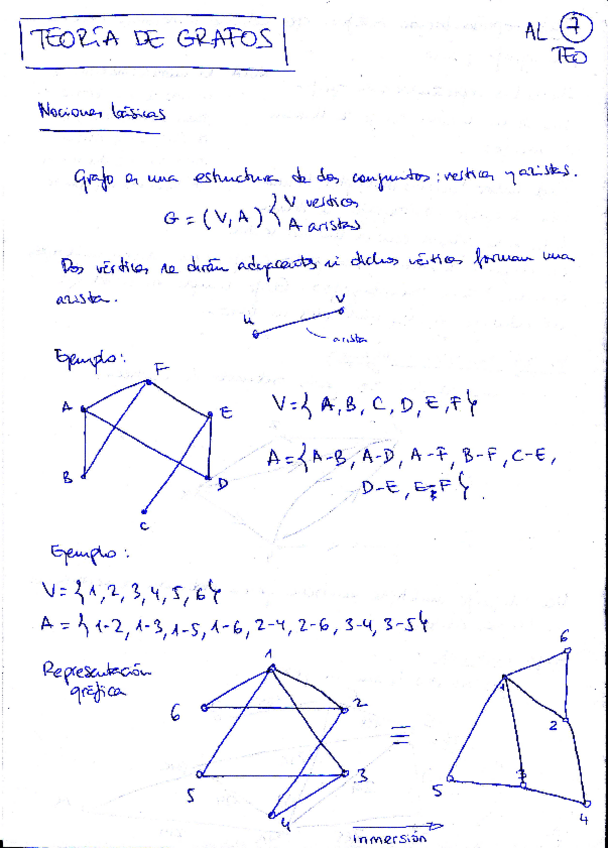 TEORÍA DE GRAFOS
AL 7
TEO
Nociones básicas
Grafo es una estructura de dos conjuntos: vértices y aristas.
G = (V, A) { V vértices
A aristas
Dos vértices se dirán adyacentes si dichos vértices forman una
arista.
u
v
arista
Ejemplo:
F
A
E
B
D
C
V = { A, B, C, D, E, F }
A = { A-B, A-D, A-F, B-F, C-E,
D-E, E-F }.
Ejemplo:
V = { 1, 2, 3, 4, 5, 6 }
A = { 1-2, 1-3, 1-5, 1-6, 2-4, 2-6, 3-4, 3-5 }
Representación
gráfica
1
6
2
5
3
4
≡
inmersión
6
1
2
5
3
4